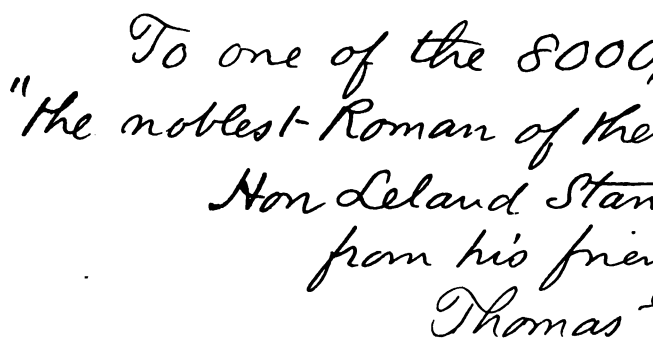 To one of the 8000,
"the noblest Roman of the
Hon Leland Stan
from his frien
Thomas